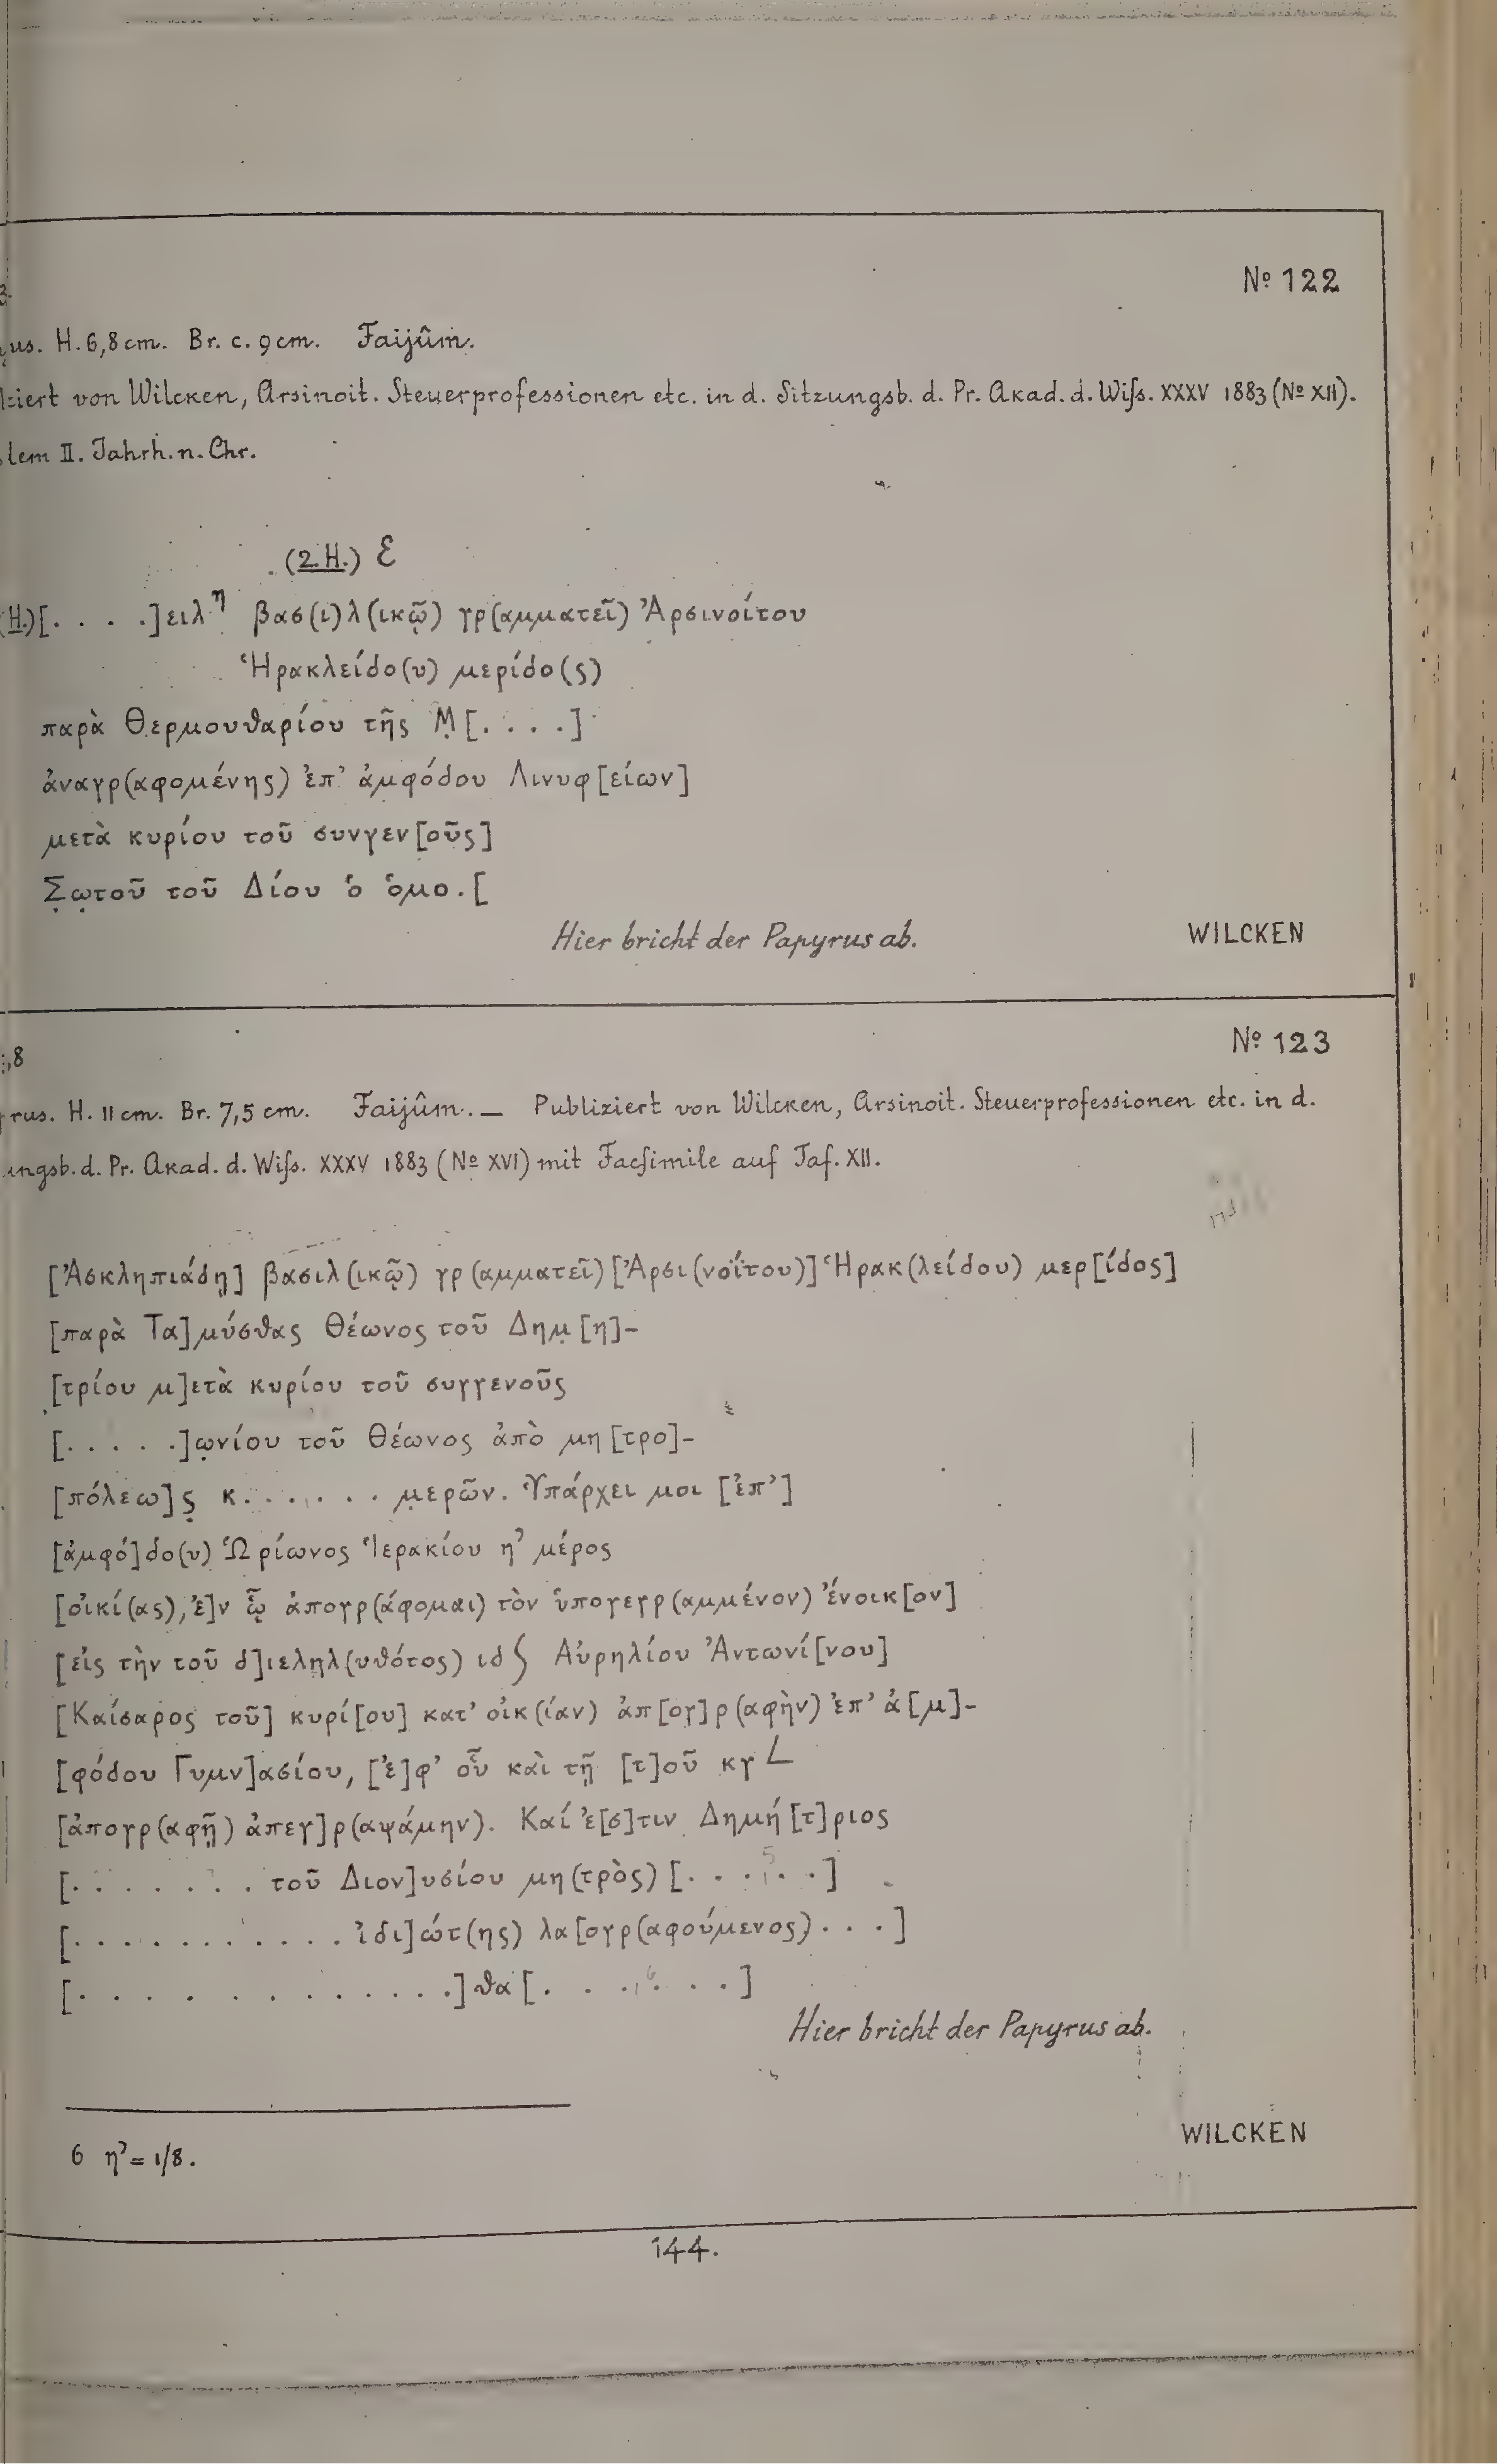 3.
№ 122
us. H. 6,8 cm. Br. c. 9 cm. Faijûm.
ziert von Wilcken, Arsinoit. Steuerprofessionen etc. in d. Sitzungsb. d. Pr. Akad. d. Wiſs. XXXV 1883 (№ XII).
dem II. Jahrh. n. Chr.
(2. H.) Ɛ
H.) [. . . .]ειλ^η βασ(ι)λ(ικῷ) γρ(αμματεῖ) Ἀρσινοίτου
Ἡρακλείδο(υ) μερίδο(ς)
παρὰ Θερμουθαρίου τῆς Μ̣[. . . .]
ἀναγρ(αφομένης) ἐπ’ ἀμφόδου Λινυφ[είων]
μετὰ κυρίου τοῦ συνγεν[οῦς]
Σ̣ω̣τοῦ τοῦ Δίου ὁ ὁμο.[
Hier bricht der Papyrus ab.
WILCKEN
,8
№ 123
rus. H. 11 cm. Br. 7,5 cm. Faijûm. — Publiziert von Wilcken, Arsinoit. Steuerprofessionen etc. in d.
ungsb. d. Pr. Akad. d. Wiſs. XXXV 1883 (№ XVI) mit Facſimile auf Taf. XII.
[Ἀσκληπιάδῃ] βασιλ(ικῷ) γρ(αμματεῖ) [Ἀρσι(νοΐτου)] Ἡρακ(λείδου) μερ[ίδος]
[παρὰ Τα]μύσθας Θέωνος τοῦ Δημ̣[η]-
[τρίου μ]ετὰ κυρίου τοῦ συγγενοῦς
[. . . . .]ω̣νίου τοῦ Θέωνος ἀπὸ μη[τρο]-
[πόλεω]ς̣ κ. . . . . . μ̣ερῶν. Ὑπάρχει μοι [ἐπ’]
[ἀμφό]δο(υ) Ὡρίωνος Ἱερακίου η’ μέρος
[οἰκί(ας), ἐ]ν ᾧ ἀπογρ(άφομαι) τὸν ὑπογεγρ(αμμένον) ἔνοικ[ον]
[εἰς τὴν τοῦ δ]ιελη̣λ(υθότος) ιδ ʃ Αὐρηλίου Ἀντωνί[νου]
[Καίσαρος τοῦ] κυρί[ου] κατ’ οἰκ(ίαν) ἀπ[ογ]ρ(αφὴν) ἐπ’ ἀ[μ]-
[φόδου Γυμν]ασίου, [ἐ]φ’ οὗ καὶ τῇ [τ]οῦ κγ L
[ἀπογρ(αφῇ) ἀπεγ]ρ(αψάμην). Καί ἐ[σ]τιν Δημή[τ]ριος
[. . . . . . . τοῦ Διον]υσίου μη(τρὸς) [. . . . . .]
[. . . . . . . . . . . ἰδι]ώτ(ης) λα[ογρ(αφούμενος) . . .]
[. . . . . . . . . . . . .]θα[. . . . . .]
Hier bricht der Papyrus ab.
6 η’ = 1/8.
WILCKEN
144.